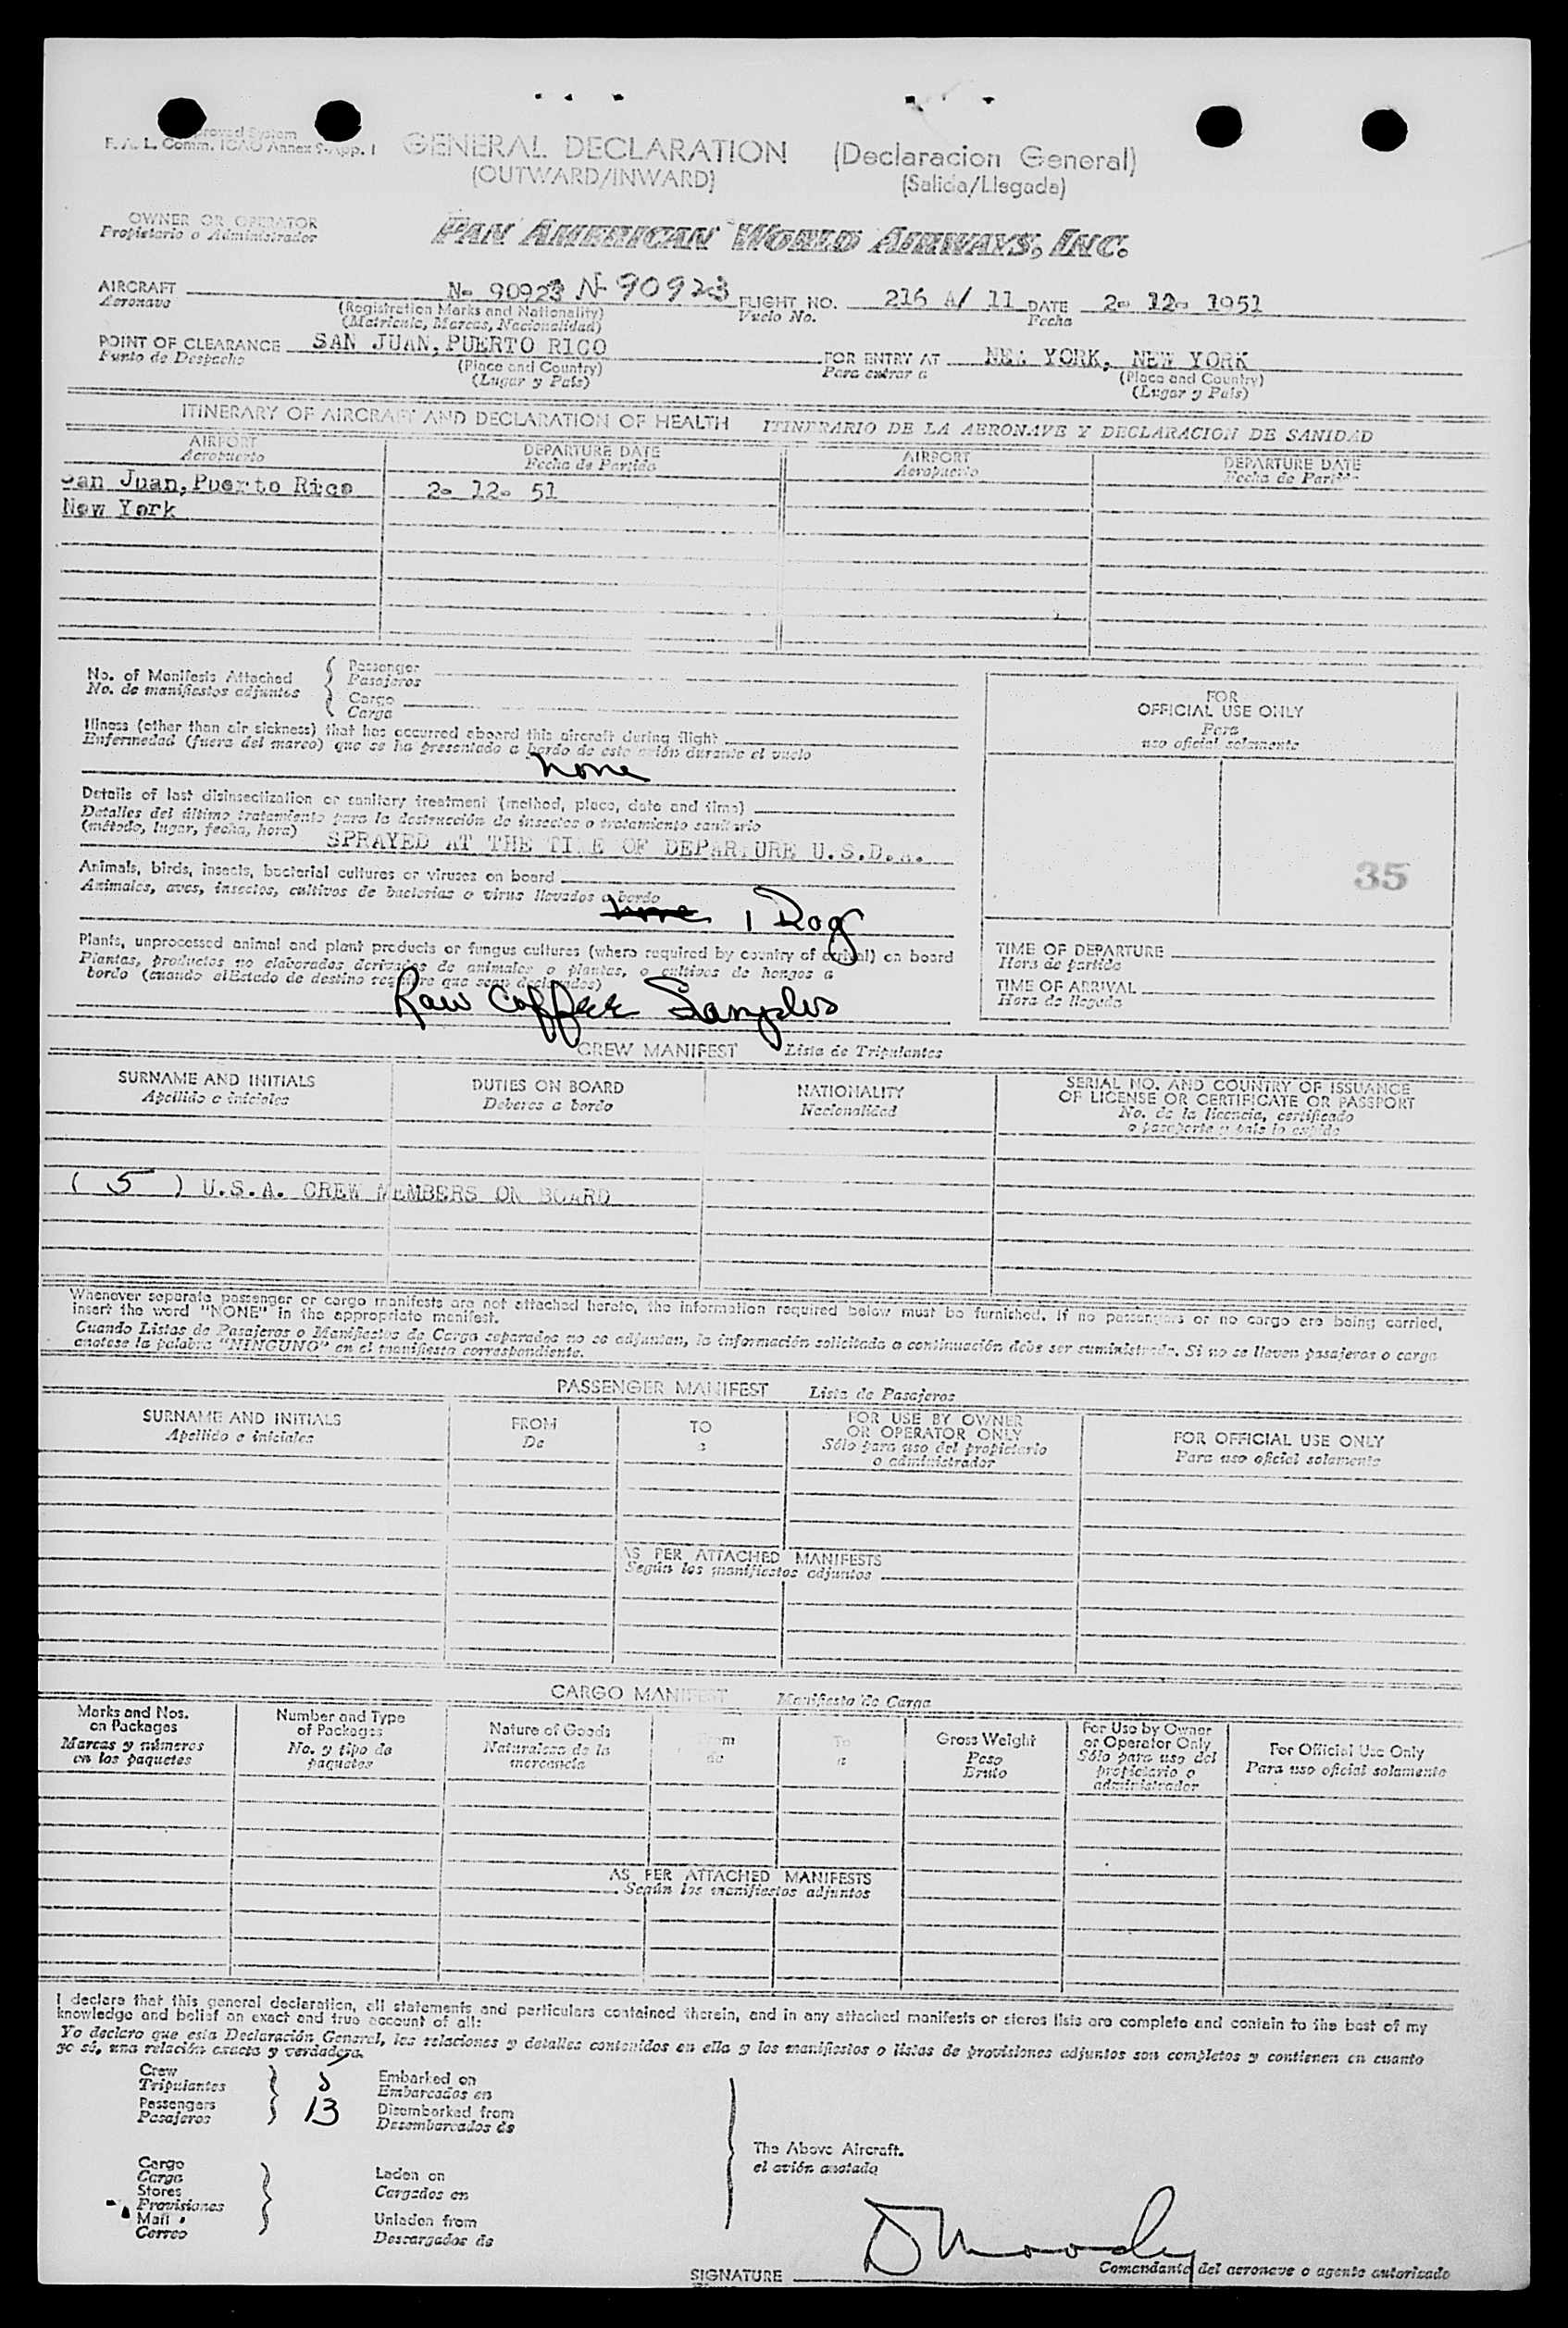 F. A. L. Comm. ICAO Annex 9-App. 1
GENERAL DECLARATION (Declaracion General)
(OUTWARD/INWARD) (Salida/Llegada)
OWNER OR OPERATOR
Propietario o Administrador
PAN AMERICAN WORLD AIRWAYS, INC.
AIRCRAFT N- 90923 N-90923 FLIGHT NO. 216 A/ 11 DATE 2- 12- 1951
Aeronave (Registration Marks and Nationality) Vuelo No. Fecha
(Matricula, Marcas, Nacionalidad)
POINT OF CLEARANCE SAN JUAN, PUERTO RICO FOR ENTRY AT NEW YORK, NEW YORK
Punto de Despacho (Place and Country) Para entrar a (Place and Country)
(Lugar y País) (Lugar y País)
ITINERARY OF AIRCRAFT AND DECLARATION OF HEALTH ITINERARIO DE LA AERONAVE Y DECLARACION DE SANIDAD
AIRPORT DEPARTURE DATE AIRPORT DEPARTURE DATE
Aeropuerto Fecha de Partida Aeropuerto Fecha de Partida
San Juan, Puerto Rico 2- 12- 51
New York
No. of Manifests Attached
No. de manifiestos adjuntos
Passenger
Pasajeros
Cargo
Carga
Illness (other than air sickness) that has occurred aboard this aircraft during flight
Enfermedad (fuera del mareo) que se ha presentado a bordo de este avión durante el vuelo
none
Details of last disinsectization or sanitary treatment (method, place, date and time)
Detalles del último tratamiento para la destrucción de insectos o tratamiento sanitario
(método, lugar, fecha, hora) SPRAYED AT THE TIME OF DEPARTURE U.S.D.A.
Animals, birds, insects, bacterial cultures or viruses on board
Animales, aves, insectos, cultivos de bacterias o virus llevados a bordo
none 1 Dog
Plants, unprocessed animal and plant products or fungus cultures (where required by country of arrival) on board
Plantas, productos no elaborados derivados de animales o plantas, o cultivos de hongos a
bordo (cuando el Estado de destino requiere que sean declarados)
Raw Coffee Samples
FOR
OFFICIAL USE ONLY
Para
uso oficial solamente
35
TIME OF DEPARTURE
Hora de partida
TIME OF ARRIVAL
Hora de llegada
CREW MANIFEST Lista de Tripulantes
SURNAME AND INITIALS DUTIES ON BOARD NATIONALITY SERIAL NO. AND COUNTRY OF ISSUANCE
OF LICENSE OR CERTIFICATE OR PASSPORT
Apellido e iniciales Deberes a bordo Nacionalidad No. de la licencia, certificado
o pasaporte y país lo expide
( 5 ) U.S.A. CREW MEMBERS ON BOARD
Whenever separate passenger or cargo manifests are not attached hereto, the information required below must be furnished. If no passengers or no cargo are being carried,
insert the word "NONE" in the appropriate manifest.
Cuando Listas de Pasajeros o Manifiestos de Carga separados no se adjuntan, la información solicitada a continuación debe ser suministrada. Si no se llevan pasajeros o carga
anotese la palabra "NINGUNO" en el manifiesto correspondiente.
PASSENGER MANIFEST Lista de Pasajeros
SURNAME AND INITIALS FROM TO FOR USE BY OWNER
OR OPERATOR ONLY FOR OFFICIAL USE ONLY
Apellido e iniciales De a Sólo para uso del propietario
o administrador Para uso oficial solamente
AS PER ATTACHED MANIFESTS
Según los manifiestos adjuntos
CARGO MANIFEST Manifiesto de Carga
Marks and Nos.
on Packages
Marcas y números
en los paquetes
Number and Type
of Packages
No. y tipo de
paquetes
Nature of Goods
Naturaleza de la
mercancía
From
de
To
a
Gross Weight
Peso
Bruto
For Use by Owner
or Operator Only
Sólo para uso del
propietario o
administrador
For Official Use Only
Para uso oficial solamente
AS PER ATTACHED MANIFESTS
Según los manifiestos adjuntos
I declare that this general declaration, all statements and particulars contained therein, and in any attached manifests or stores lists are complete and contain to the best of my
knowledge and belief an exact and true account of all:
Yo declaro que esta Declaración General, las relaciones y detalles contenidos en ella y los manifiestos o listas de provisiones adjuntos son completos y contienen en cuanto
yo sé, una relación exacta y verdadera.
Crew 5 Embarked on
Tripulantes Embarcados en
Passengers 13 Disembarked from
Pasajeros Desembarcados de
The Above Aircraft.
el avión anotado
Cargo
Carga Laden on
Stores Cargados en
Provisiones
Mail Unladen from
Correo Descargados de
D Moody
SIGNATURE Comandante del aeronave o agente autorizado